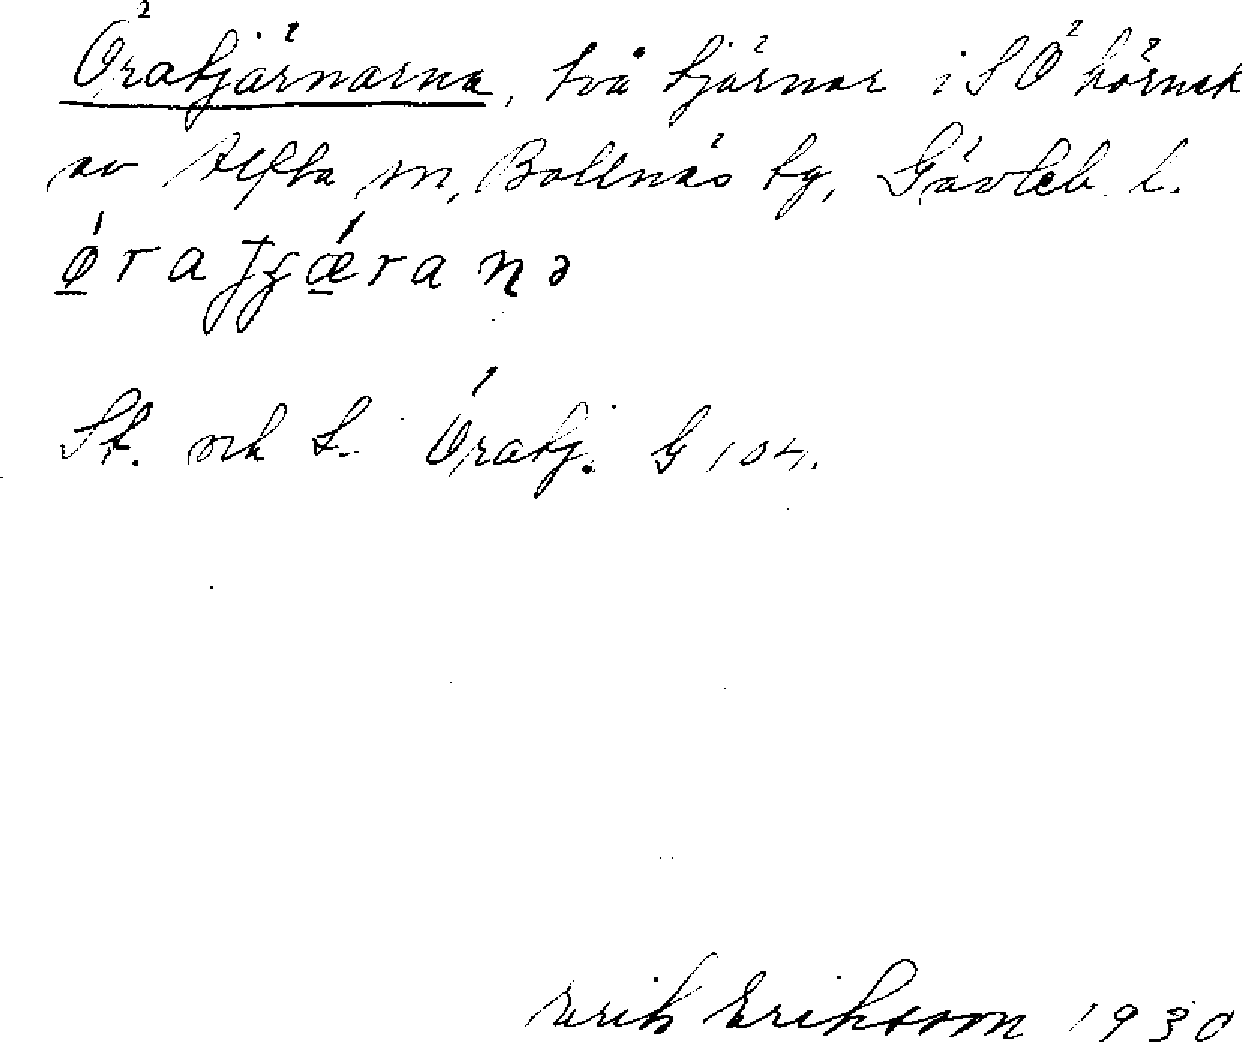 Öratjärnarna, två tjärnar i SÖ hörnet
av Alfta sn, Bollnäs tg, Gävleb. l.
St. och L. Öratj. G 104.
Erik Eriksson 1930